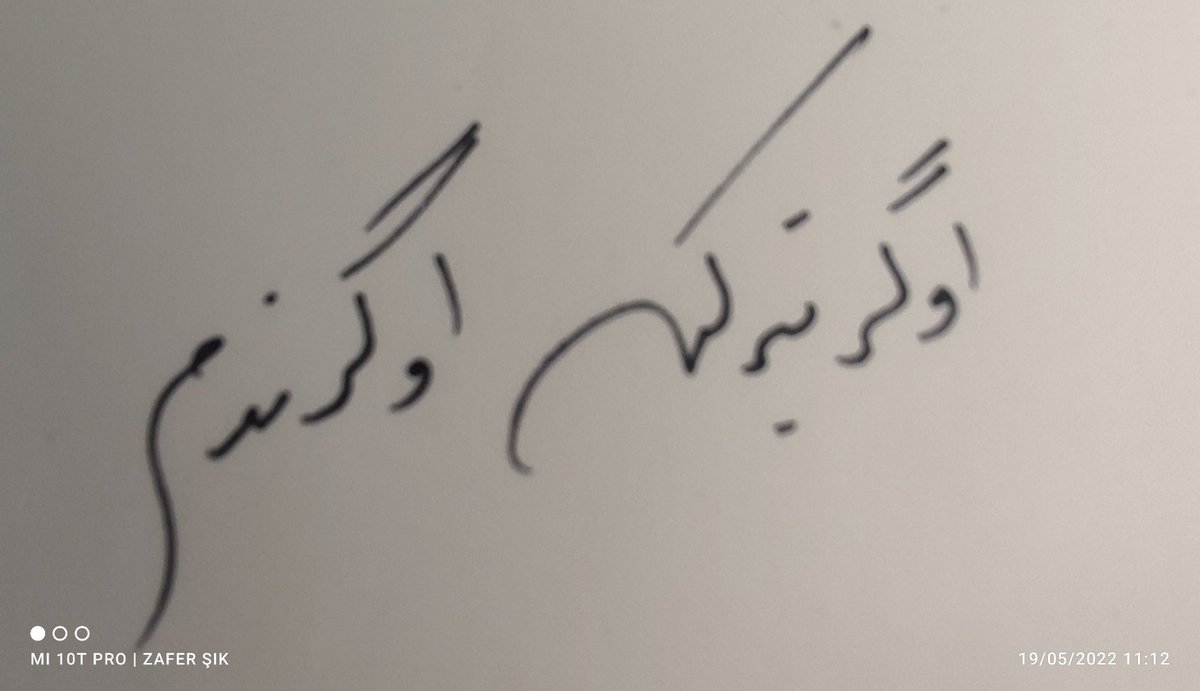 اوگرتیركن اوگرندم
MI 10T PRO | ZAFER ŞIK 19/05/2022 11:12